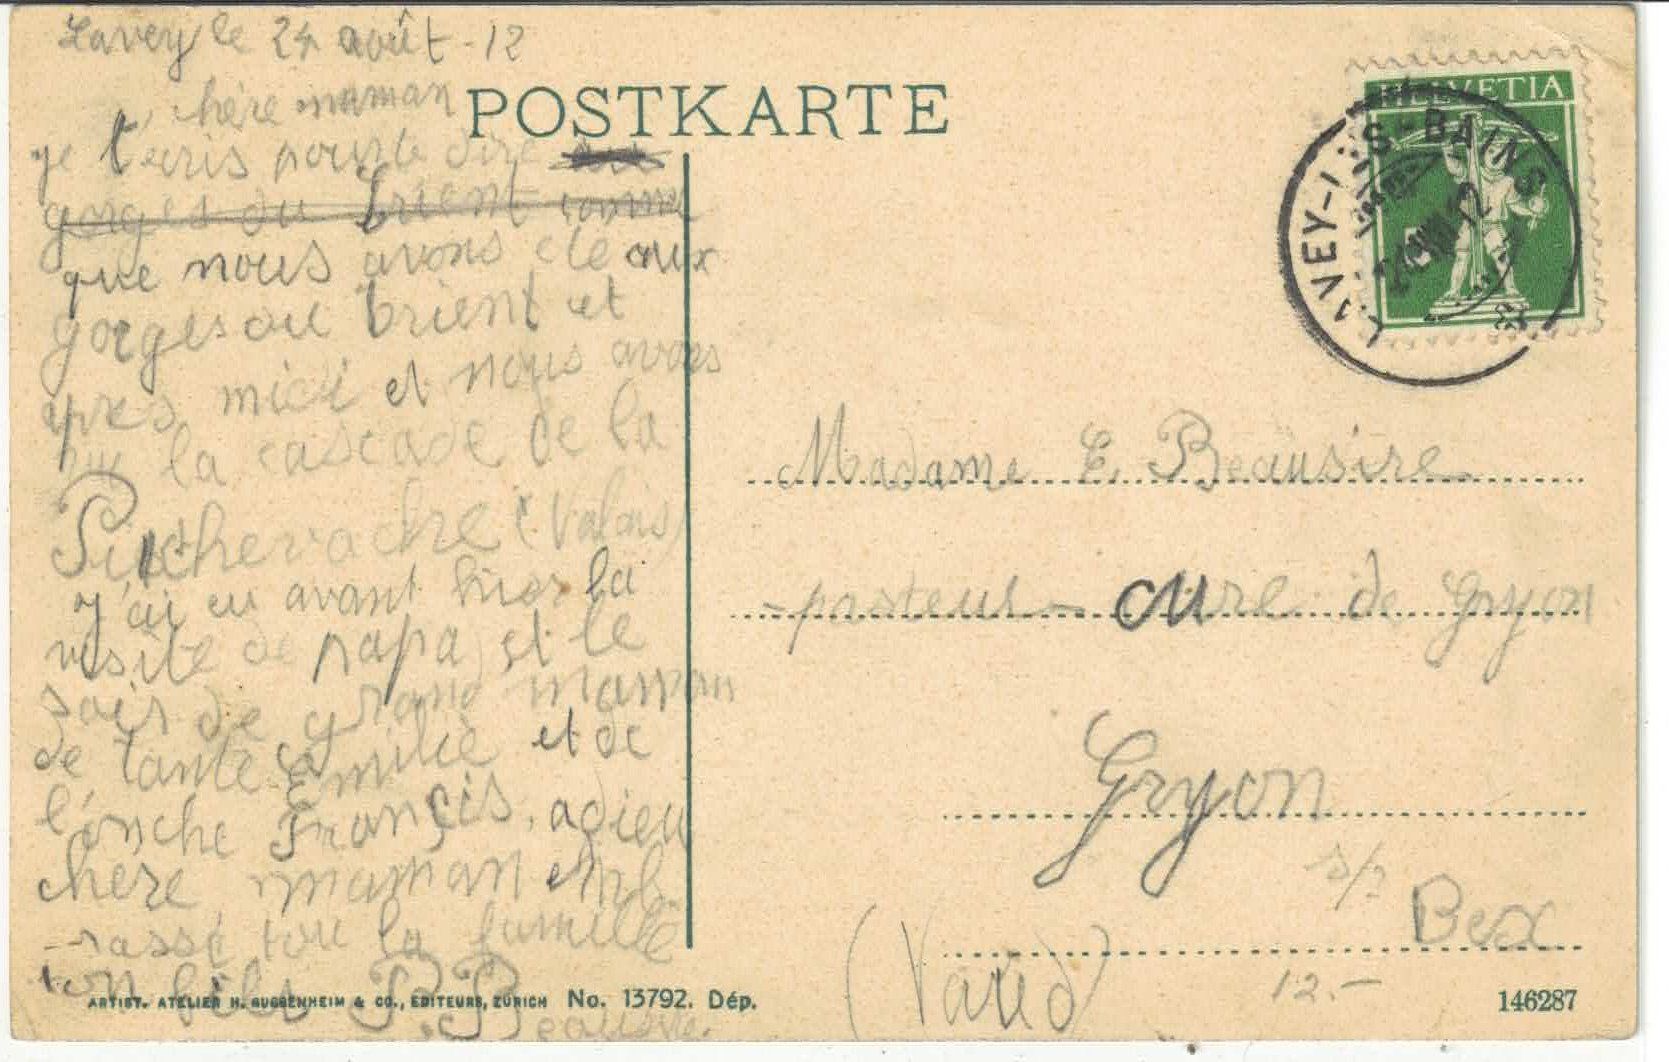 Lavey le 24 août - 12
chère maman
POSTKARTE
je t'ecris pour te dire
gorges du trient comme
que nous avons ete aux
gorges du trient et
apres midi et nous avons
vu la cascade de la
Pissevache (Valais)
J'ai eu avant hier la
visite de papa, et le
soir de grand maman
de tante Emilie et de
l'oncle François, adieu
chere maman emb
-rasse tou la famille
ton fils P. Beausire.
HELVETIA
LAVEY-LES-BAINS
24 VIII 12
Madame E. Beausire
-pasteur- cure de Gryon
Gryon
s/
Bex
(Vaud)
12.-
ARTIST. ATELIER H. GUGGENHEIM & CO., EDITEURS, ZURICH No. 13792. Dép.
146287